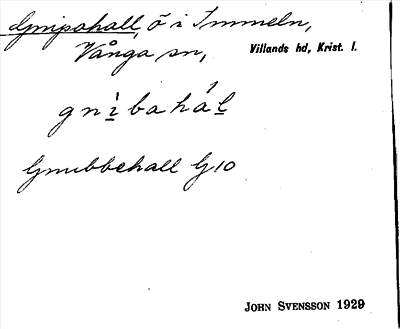 Gnipahall, ö i Immeln,
Vånga sn, Villands hd, Krist. l.
gnìbahál
Gnubbehall G10
JOHN SVENSSON 1929